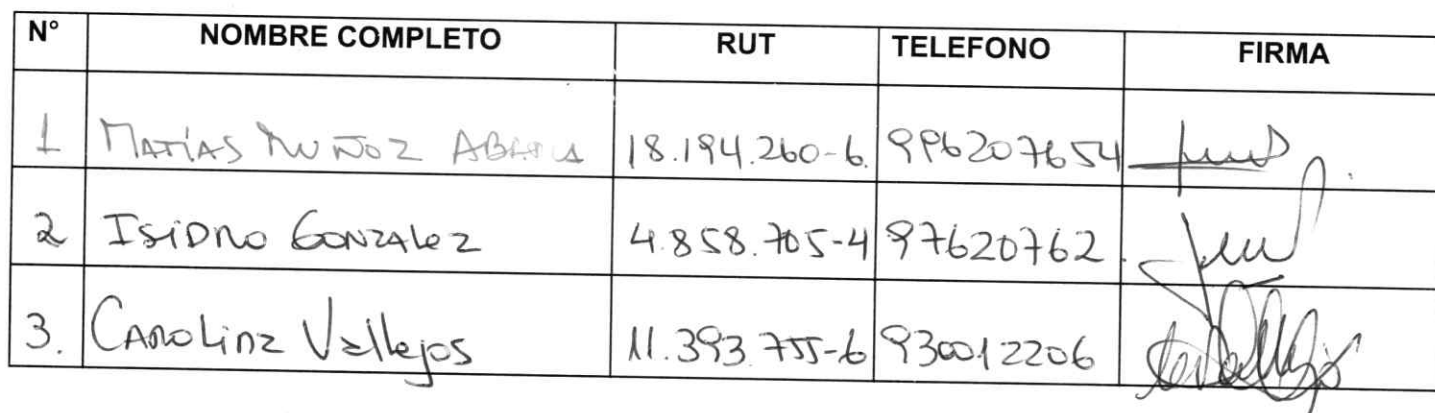 N° NOMBRE COMPLETO RUT TELEFONO FIRMA
1 MATÍAS MUÑOZ 18.194.260-6. 996207654
2 ISIDRO GONZALEZ 4.858.705-4 97620762.
3. CAROLINA Vallejos 11.393.755-6 930012206